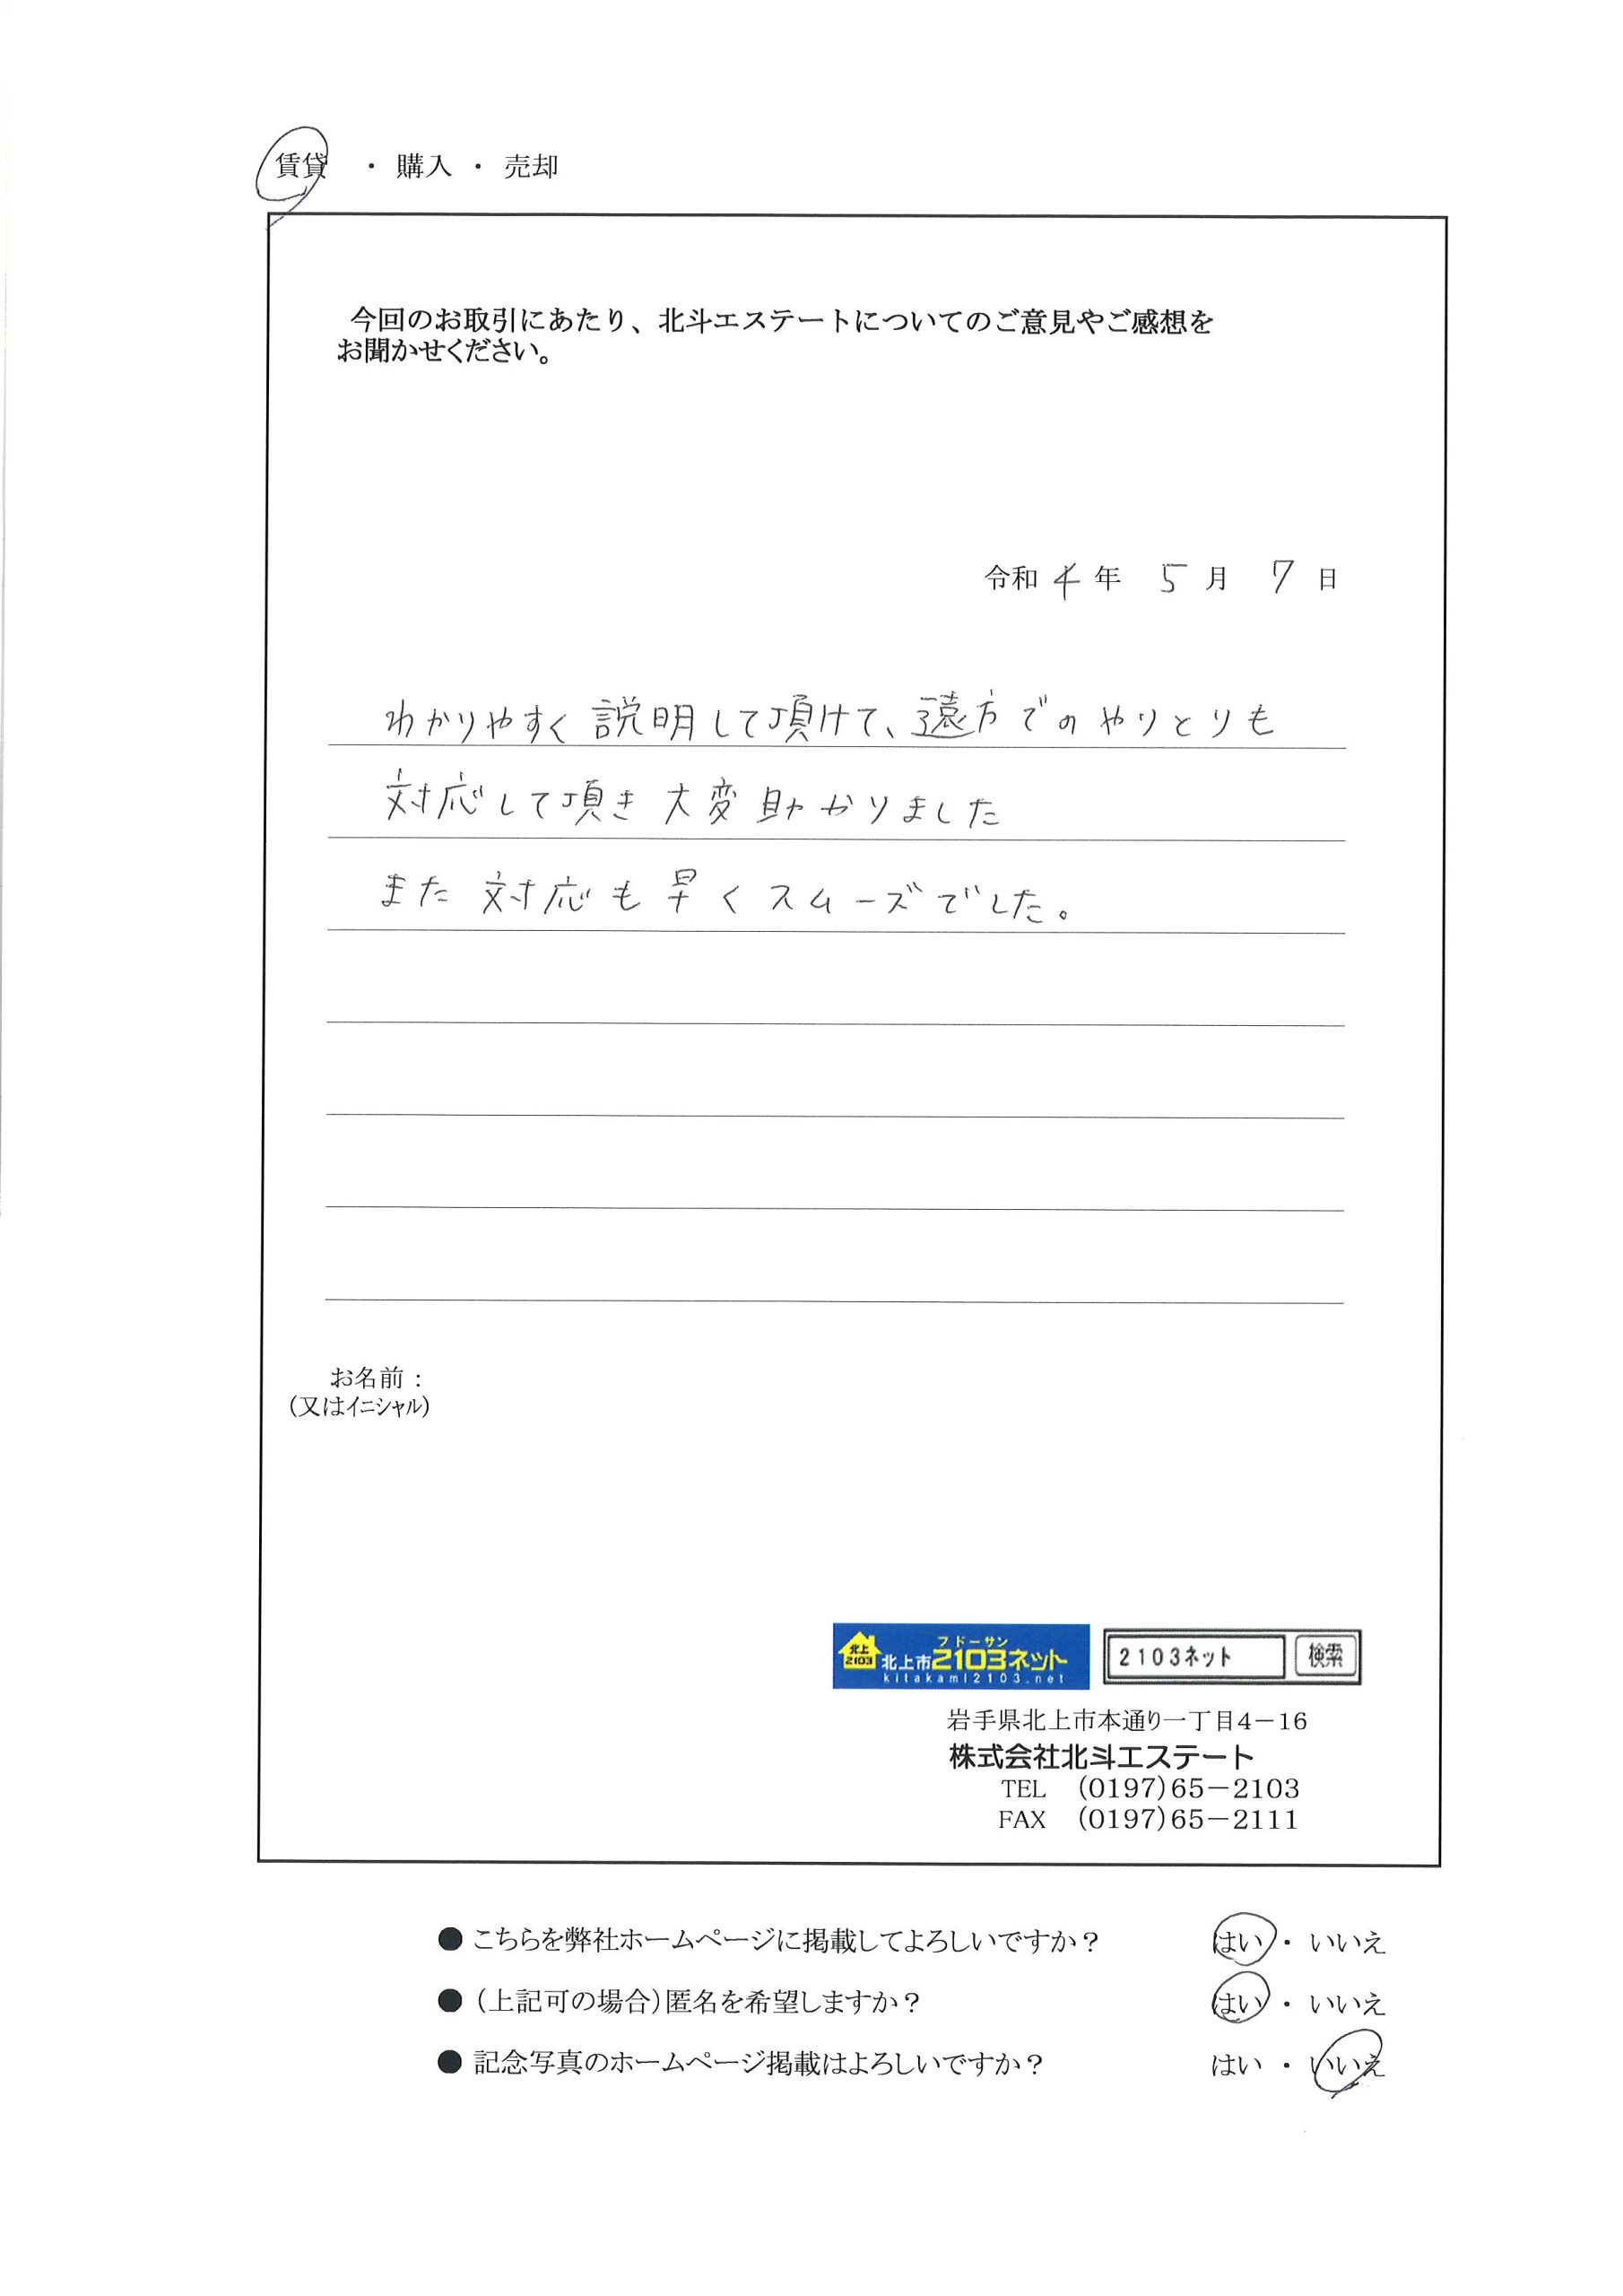 賃貸 ・ 購入 ・ 売却
今回のお取引にあたり、北斗エステートについてのご意見やご感想を
お聞かせください。
令和 4 年 5 月 7 日
わかりやすく説明して頂けて、遠方でのやりとりも
対応して頂き大変助かりました
また対応も早くスムーズでした。
お名前：
（又はイニシャル）
北上
2103
フドーサン
北上市2103ネット
kitakami2103.net
2103ネット 検索
岩手県北上市本通り一丁目4－16
株式会社北斗エステート
TEL （0197）65－2103
FAX （0197）65－2111
● こちらを弊社ホームページに掲載してよろしいですか？ はい ・ いいえ
● （上記可の場合）匿名を希望しますか？ はい ・ いいえ
● 記念写真のホームページ掲載はよろしいですか？ はい ・ いいえ